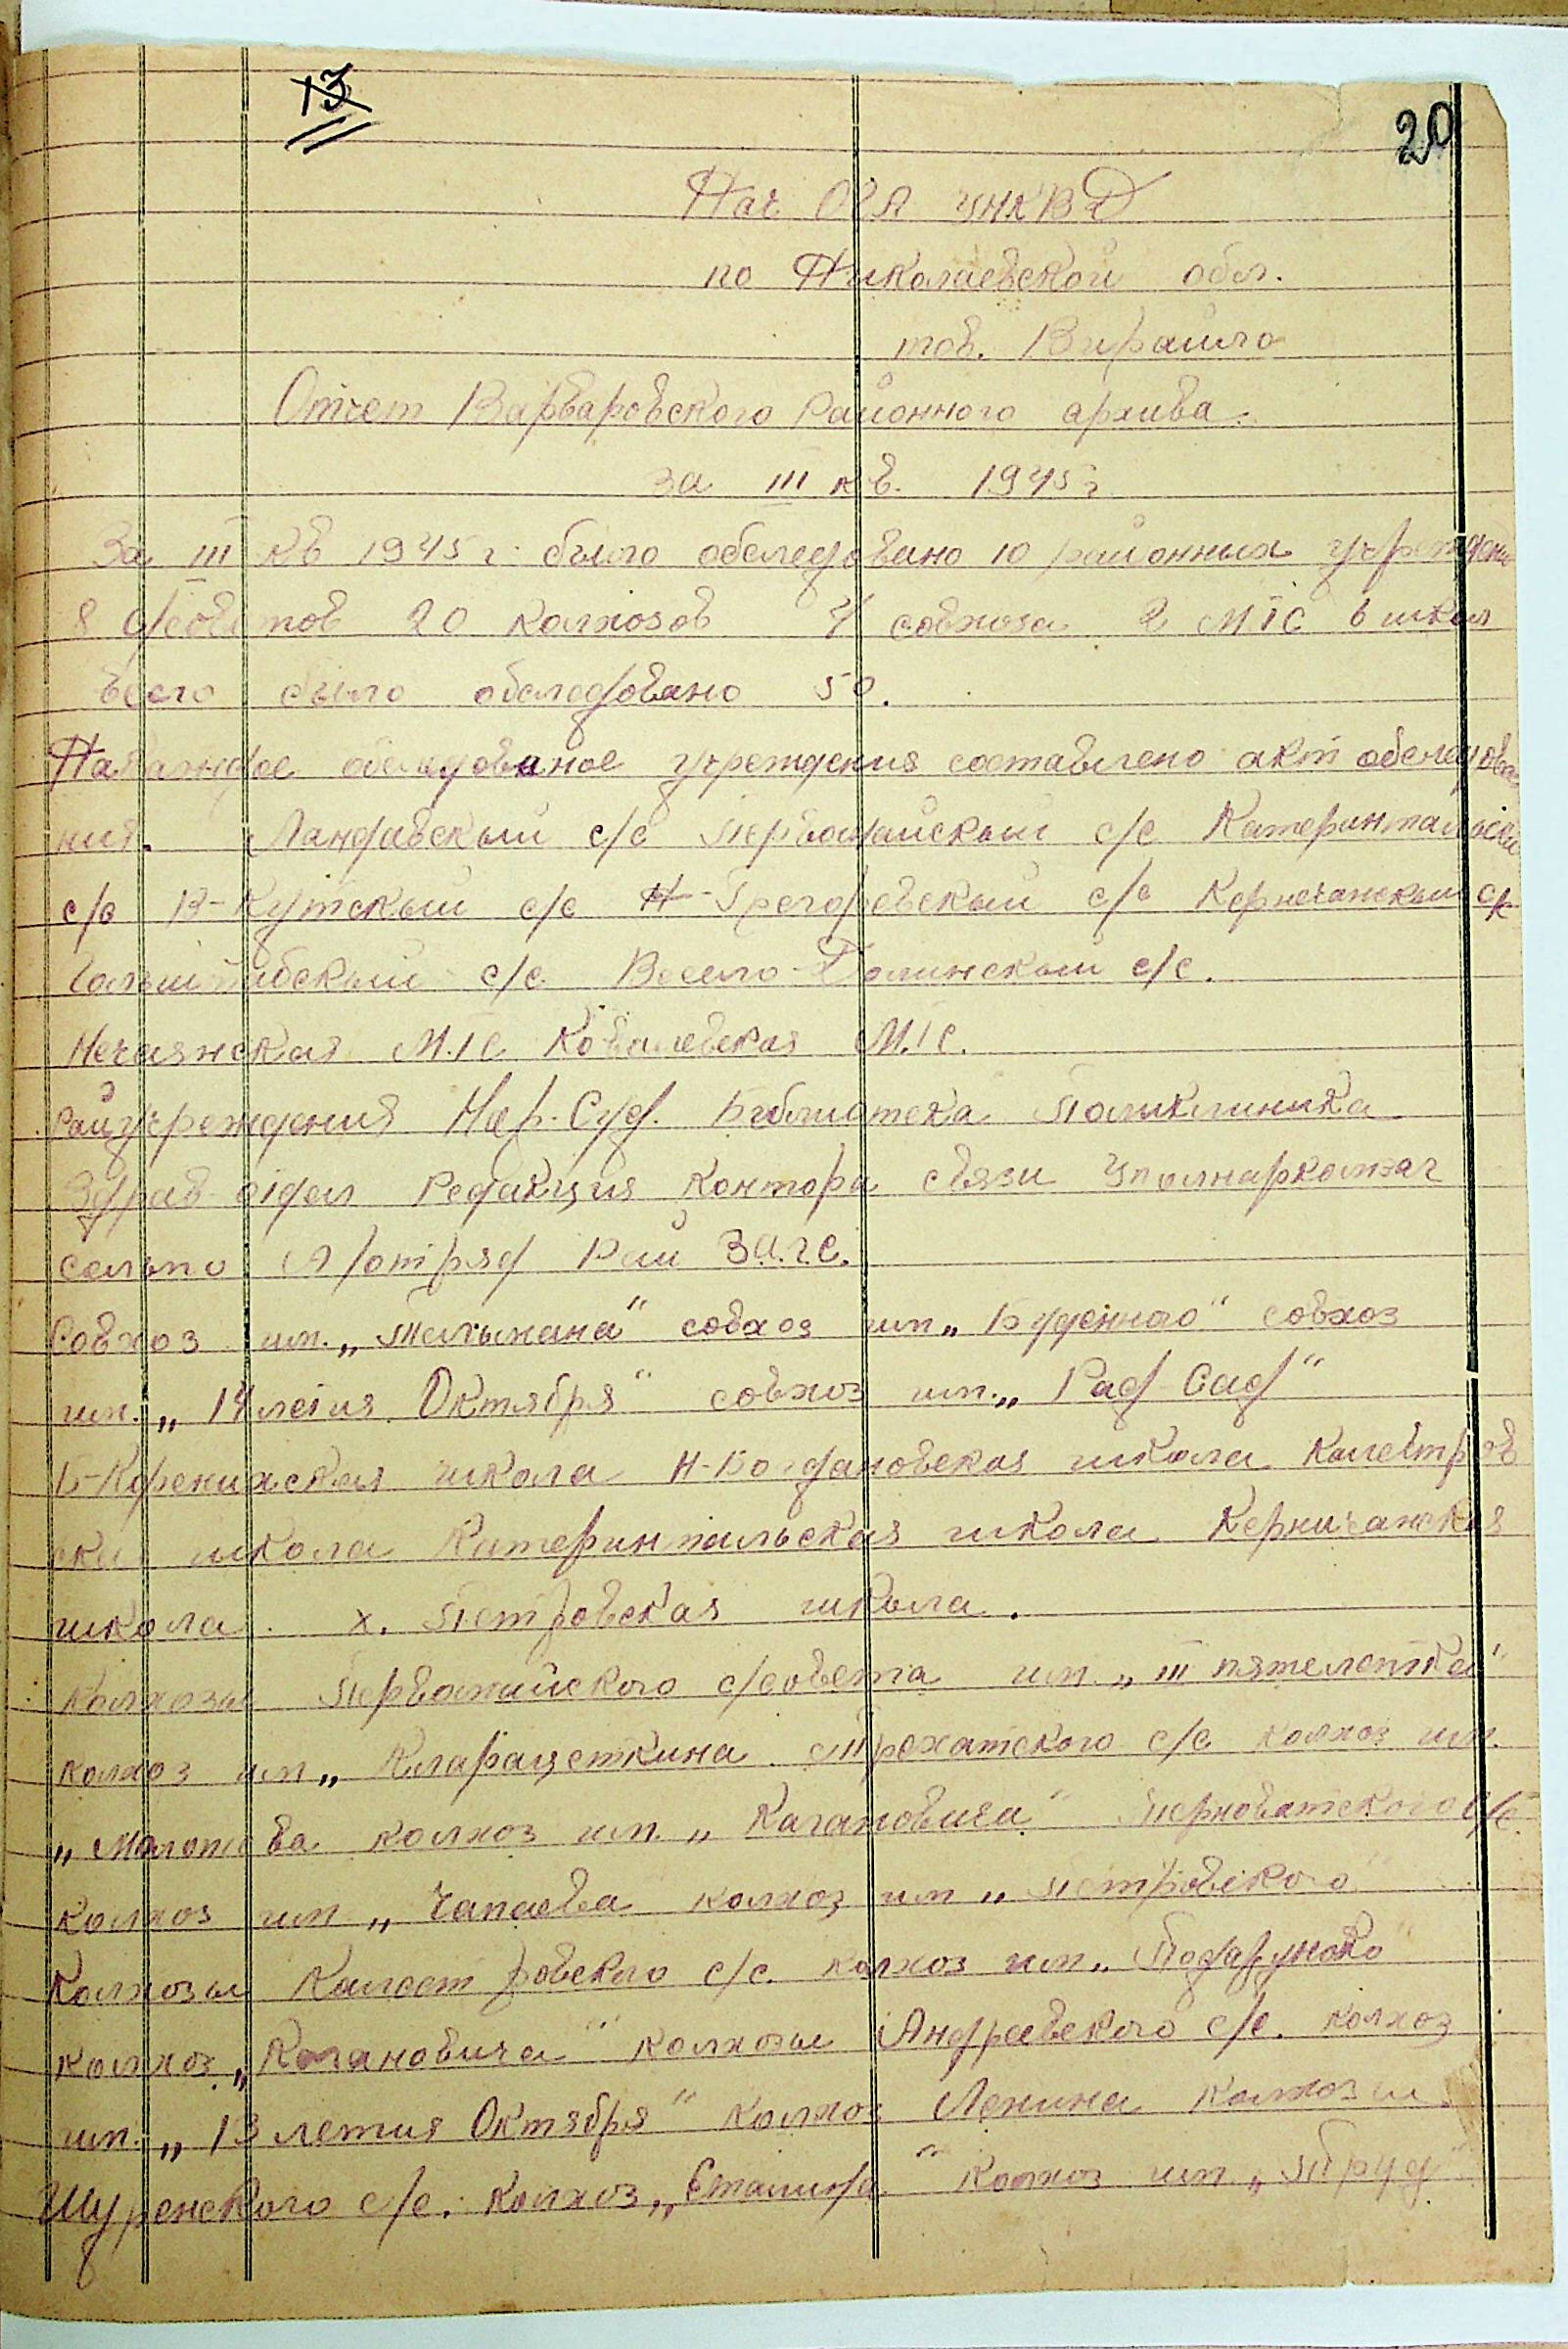 13
20
Нач ОГА УНКВД
по Николаевской обл.
тов. Вирайло
Отчет Варваровского Районного архива.
за III кв. 1945 г
За III кв 1945 г. было обследовано 10 районных учреждени
8 с/советов 20 колхозов 4 совхоза 2 МТС 6 школ
всего было обследовано 50.
На каждое обследованое учреждения составлено акт обследова
ния. Ландавский с/с Первомайский с/с Катеринтальски
с/с В-Кутский с/с Н-Грегоревский с/с Кернечанский с/с
с/с Весело-Долинский с/с.
Нечаянская М.Т.С. Ковалевская М.Т.С.
Райучреждения Нар. Суд. Библиотека Поликлиника
Здрав-отдел Редакция Контора связи Уполнаркомзаг
Сельпо А/отряд Рай ЗАГС.
Совхоз им. „Тельмана" совхоз им „Буденного" совхоз
им. „14 летия Октября" совхоз им. „Рад-Сад"
Б-Коренихская школа Н-Богдановская школа Калестров
ская школа Катеринтальская школа Керничанская
школа. х. Петровская школа.
Колхозы Первомайского с/совета им. „III пятелетки"
колхоз им „Кларацеткина Трехатского с/с колхоз им.
„Молотова колхоз им. „Кагановича" Терноватского с/с.
колхоз им „Чапаева колхоз им „Петровского
Колхозы Калестровского с/с. колхоз им. „
колхоз „Кагановича" колхозы Андреевского с/с. колхоз
им. „13 летия Октября" колхоз Ленина колхозы
Щуренского с/с. колхоз „Сталина" колхоз им. „Труд"